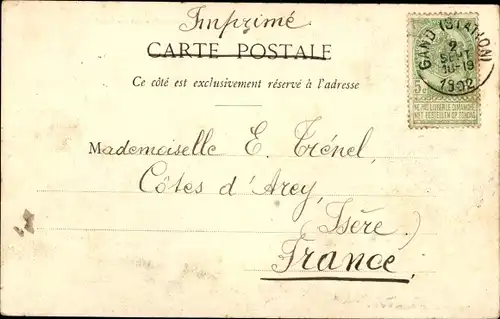 Imprimé
CARTE POSTALE
Ce côté est exclusivement réservé à l'adresse
GAND (STATION)
2
SEPT
18-19
1902
5c
NE PAS LIVRER LE DIMANCHE
NIET BESTELLEN OP ZONDAG
Mademoiselle E. Trénel,
Côtes d'Arey,
(Isère.)
France.